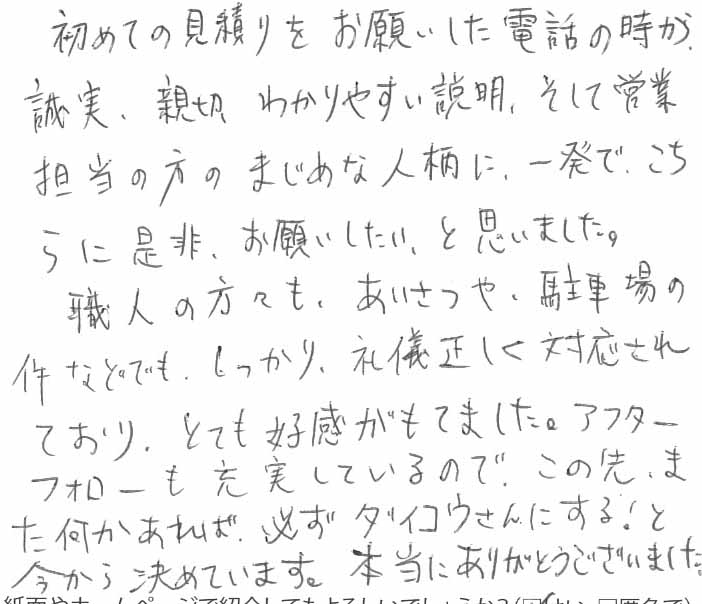 初めての見積りをお願いした電話の時が、
誠実、親切、わかりやすい説明、そして営業
担当の方のまじめな人柄に、一発で、こち
らに是非、お願いしたい、と思いました。
職人の方々も、あいさつや、駐車場の
件などでも、しっかり、礼儀正しく対応され
ており、とても好感がもてました。アフター
フォローも充実しているので、この先、ま
た何かあれば、必ずダイコウさんにする！と
今から決めています。本当にありがとうございました。